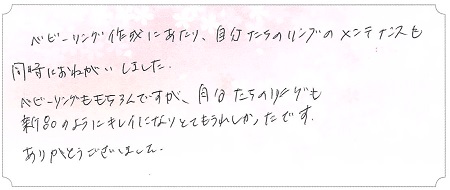 ベビーリング作成にあたり、自分たちのリングのメンテナンスも
同時におねがいしました。
ベビーリングももちろんですが、自分たちのリングも
新品のようにキレイになりとてもうれしかったです。
ありがとうございました。